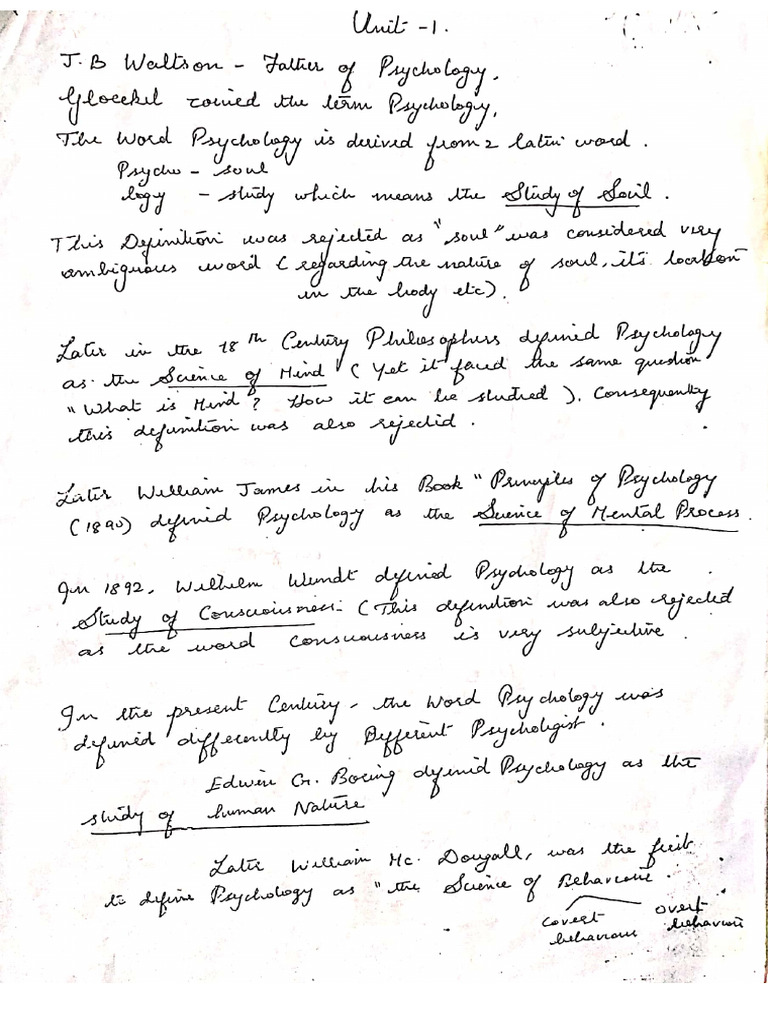 Unit -1.
J. B Waltson - Father of Psychology.
Gloeckel coined the term Psychology.
The Word Psychology is derived from 2 latin word.
Psycho - soul
logy - study which means the Study of Soul.
This Definition was rejected as "soul" was considered very
ambiguous word (regarding the nature of soul, it's location
in the body etc).
Later in the 18th Century Philosophers defined Psychology
as the Science of Mind (Yet it faced the same question
"What is Mind? How it can be studied). Consequently
this definition was also rejected.
Later William James in his Book "Principles of Psychology
(1890) defined Psychology as the Science of Mental Process.
In 1892, Wilhelm Wundt defined Psychology as the
Study of Consciousness. (This definition was also rejected
as the word consciousness is very subjective.
In the present Century - the Word Psychology was
defined differently by Different Psychologist.
Edwin G. Boring defined Psychology as the
study of human Nature
Later William Mc. Dougall, was the first
to define Psychology as "the Science of Behaviour.
covert overt
behaviour behaviour